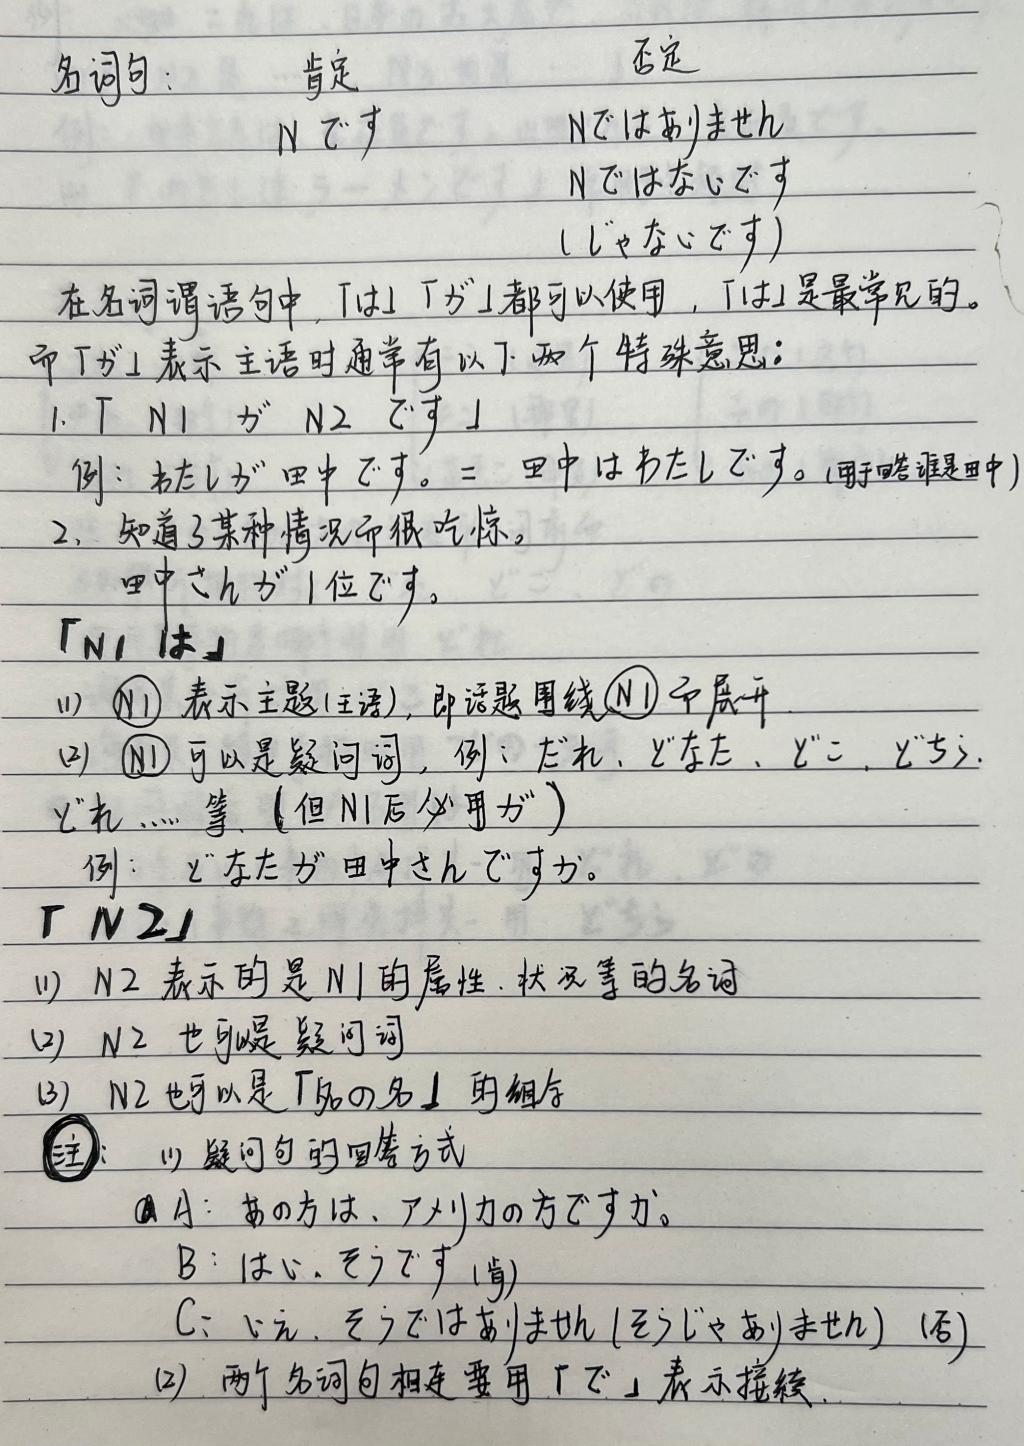 名词句: 肯定 否定
Nです Nではありません
Nではないです
(じゃないです)
在名词谓语句中,「は」「が」都可以使用,「は」是最常见的。
而「が」表示主语时通常有以下两个特殊意思:
1.「 N1 が N2 です」
例: わたしが田中です。= 田中はわたしです。(用于回答谁是田中)
2、知道了某种情况而很吃惊。
田中さんが1位です。
「N1 は」
(1) N1 表示主题(主语), 即话题围绕 N1 而展开.
(2) N1 可以是疑问词, 例: だれ、どなた、どこ、どちら.
どれ ..... 等. (但N1后必用が)
例: どなたが田中さんですか。
「N2」
(1) N2 表示的是N1的属性.状况等的名词
(2) N2 也可以是疑问词
(3) N2也可以是「名の名」的组合
注: (1) 疑问句的回答方式
A: あの方は、アメリカの方ですか。
B: はい、そうです (肯)
C: いえ、そうではありません(そうじゃありません) (否)
(2) 两个名词句相连要用「で」表示接续.